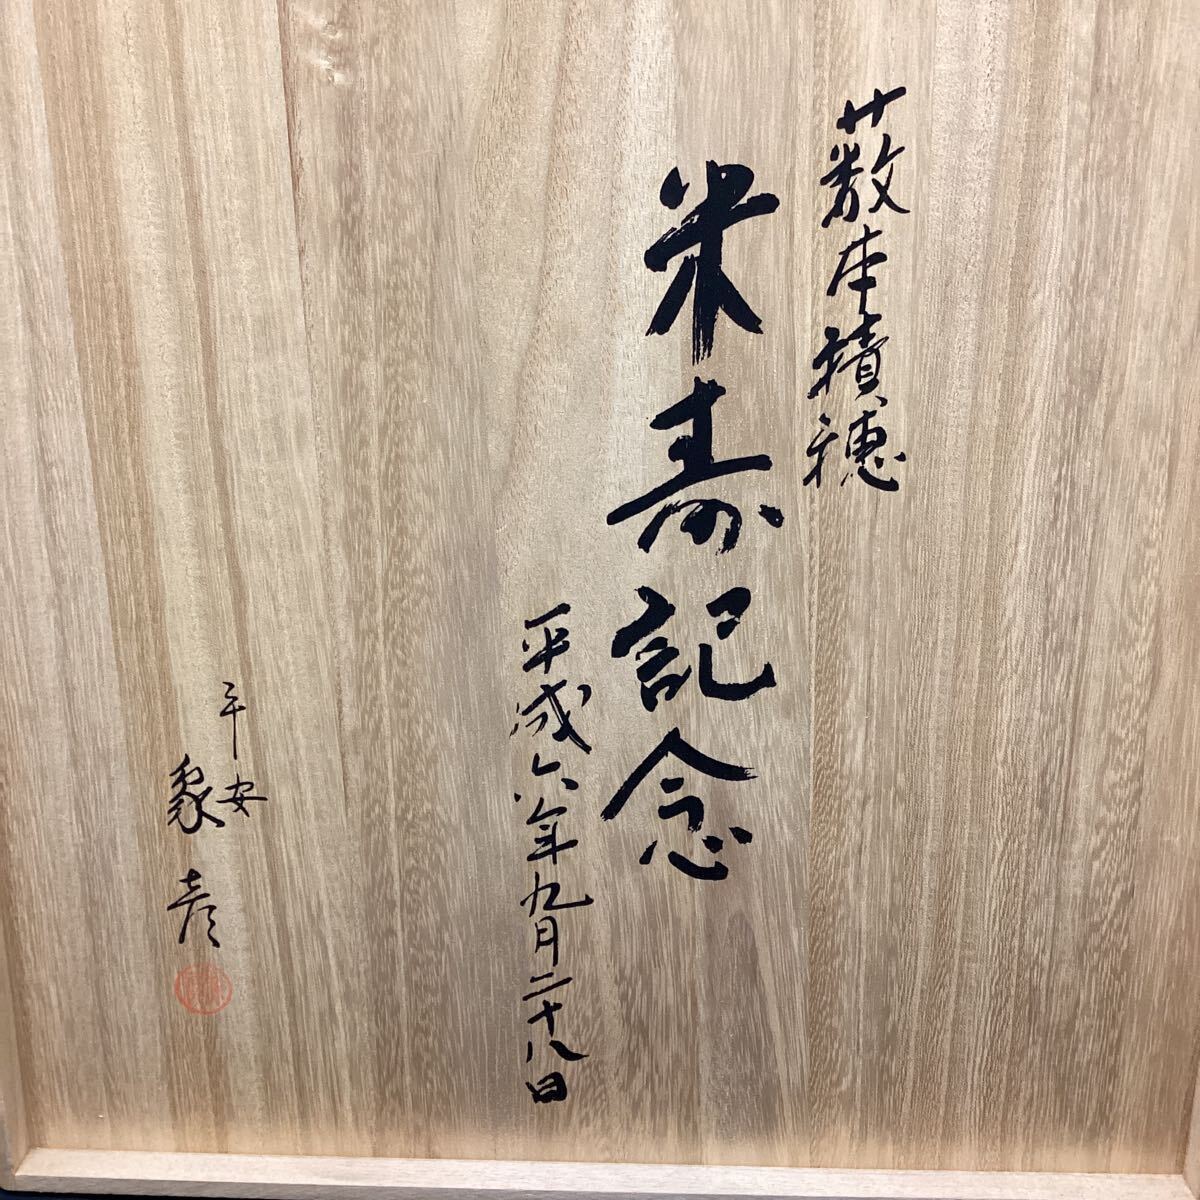 藪本積穂
米寿記念
平成六年九月二十八日
平安
象彦